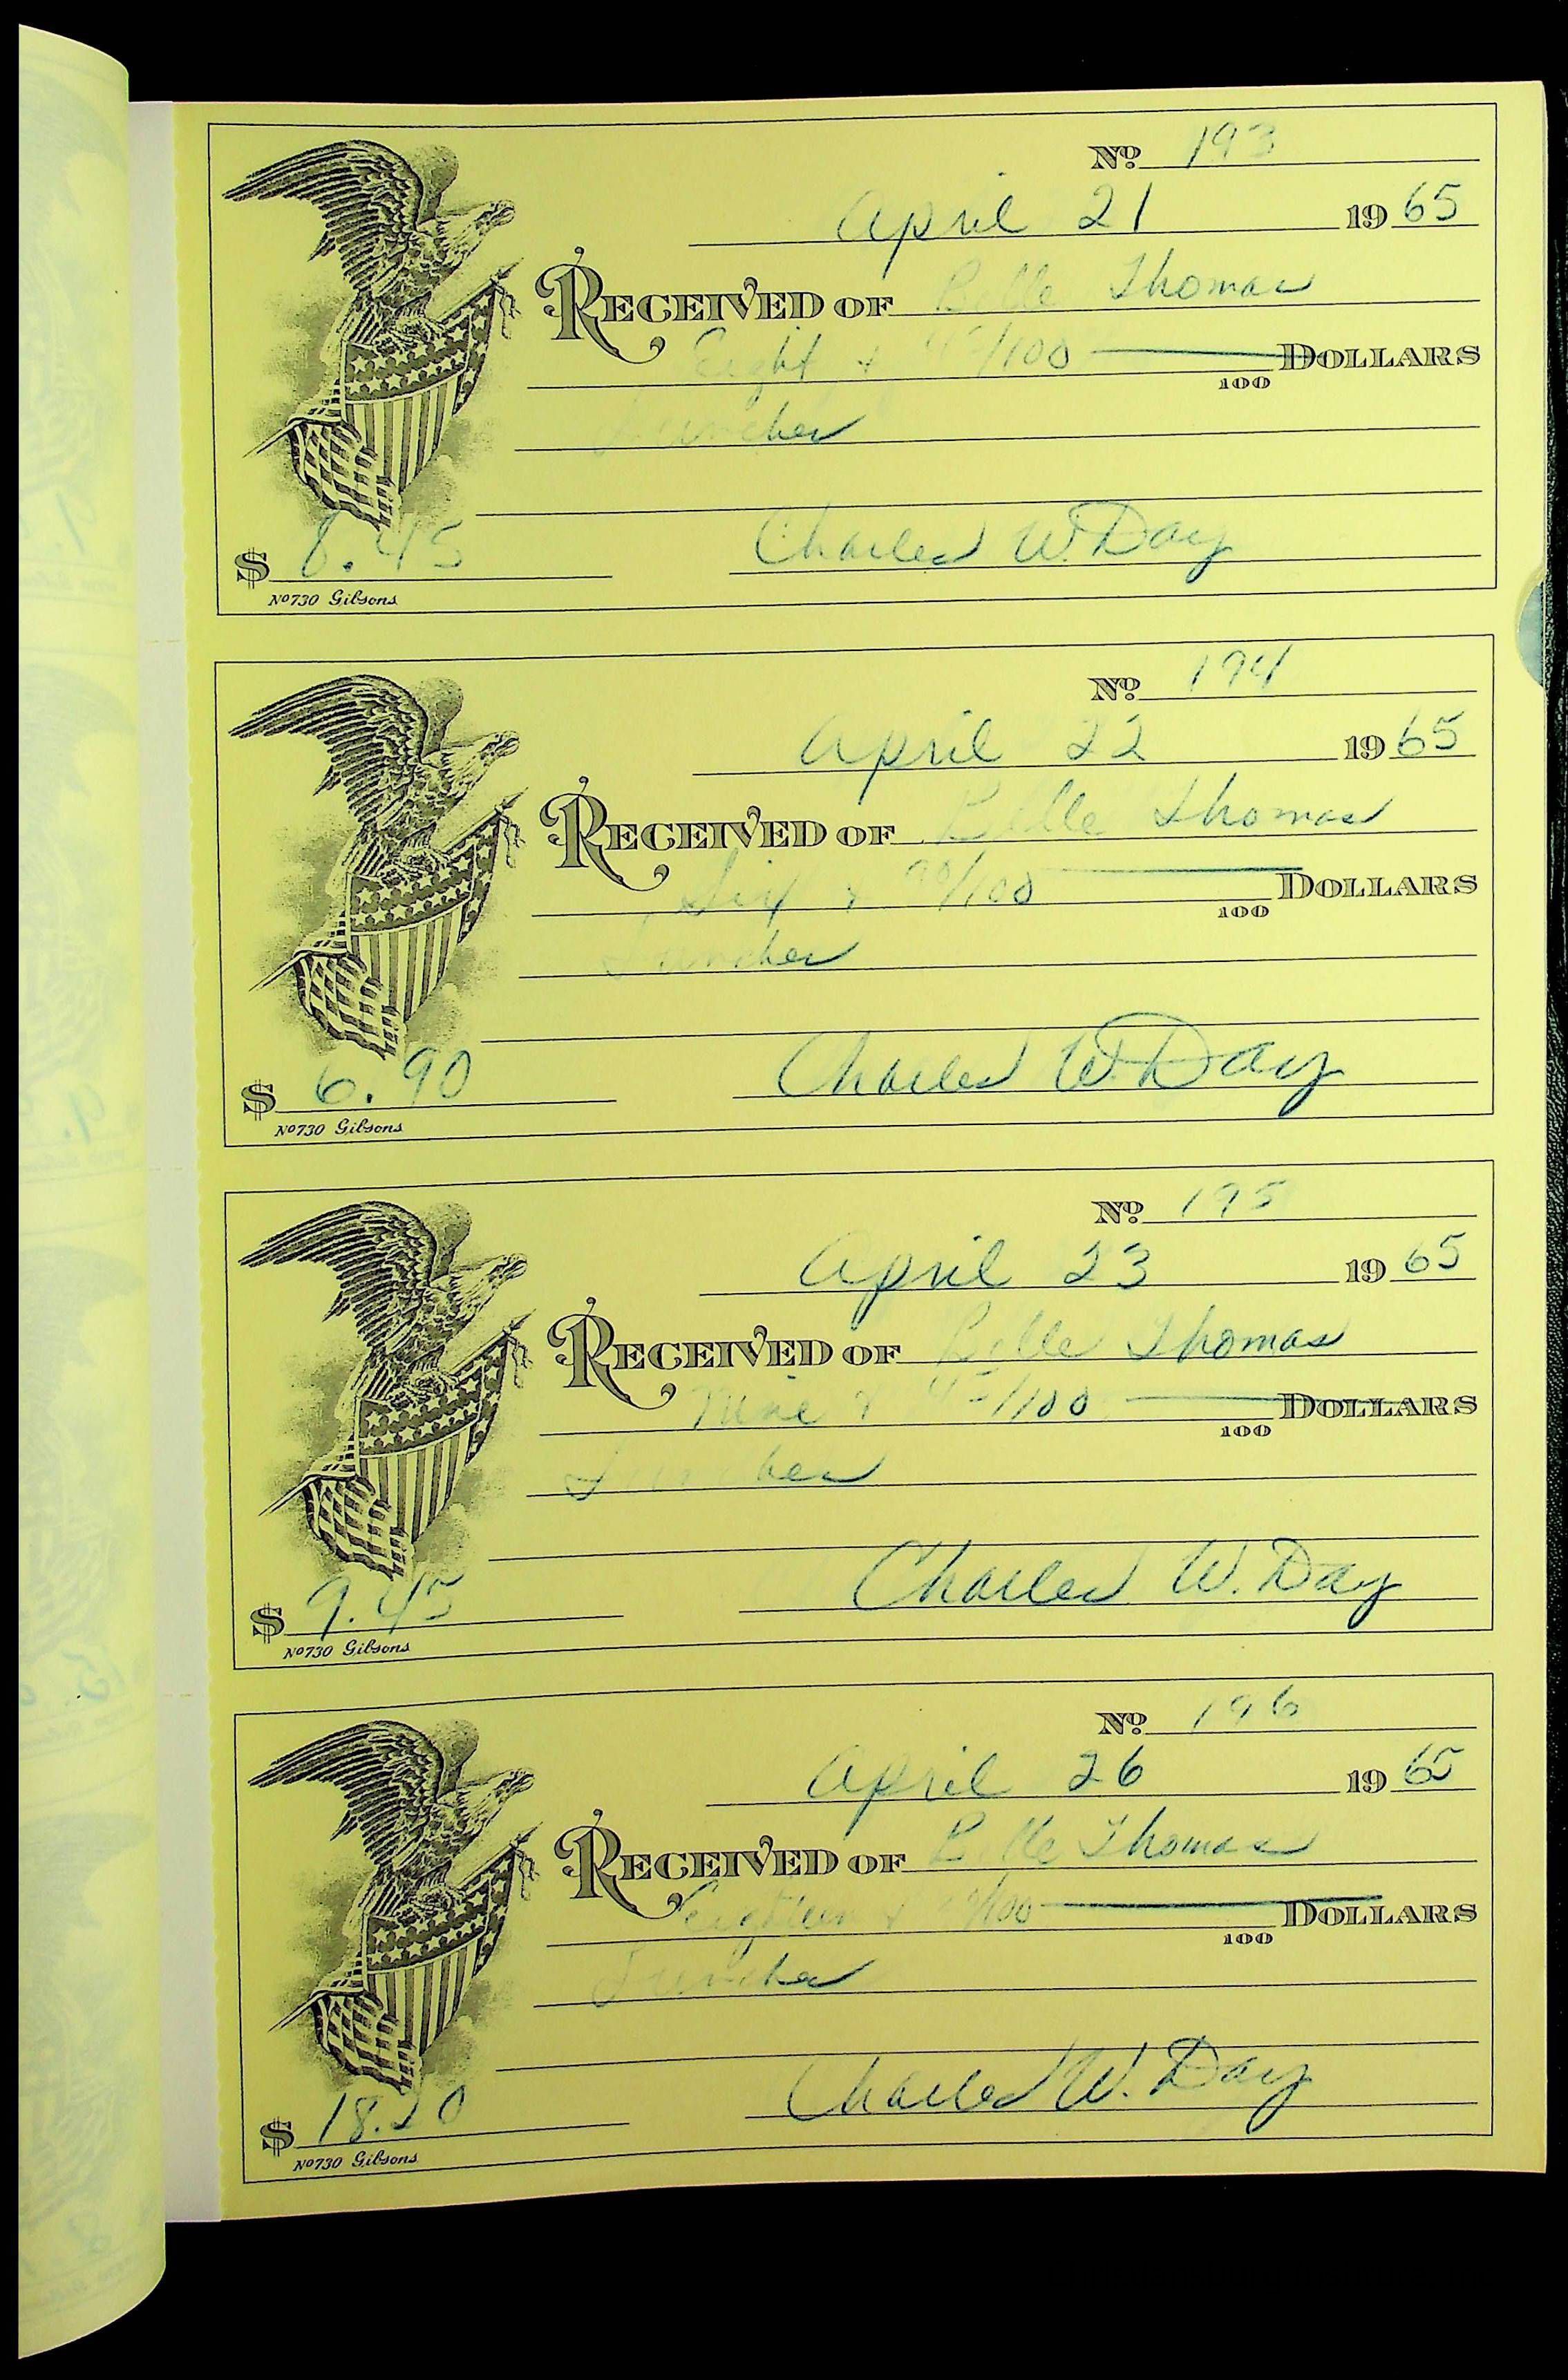 No. 193
April 21 1965
RECEIVED OF Belle Thomas
Eight & 45/100 DOLLARS
100
Lunches
Charles W. Day
$ 8.45
No 730 Gibsons
No. 194
April 22 1965
RECEIVED OF Belle Thomas
Six & 90/100 DOLLARS
100
Lunches
Charles W. Day
$ 6.90
No 730 Gibsons
No. 195
April 23 1965
RECEIVED OF Belle Thomas
Nine & 45/100 DOLLARS
100
Lunches
Charles W. Day
$ 9.45
No 730 Gibsons
No. 196
April 26 1965
RECEIVED OF Belle Thomas
Eighteen & 20/100 DOLLARS
100
Lunches
Charles W. Day
$ 18.20
No 730 Gibsons